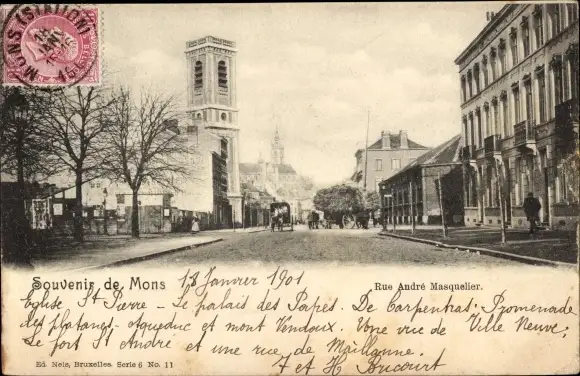 MONS (STATION)
Souvenir de Mons 18 Janvier 1901 Rue André Masquelier.
Eglise St-Pierre – Le palais des Papes. De Carpentras. Promenade
des platanes – Aqueduc et mont Vendoux. Vone vue de Ville Neuve,
Le fort St André et une rue de Maillanne.
Ed. Nels, Bruxelles. Serie 6 No. 11 et H Bricourt